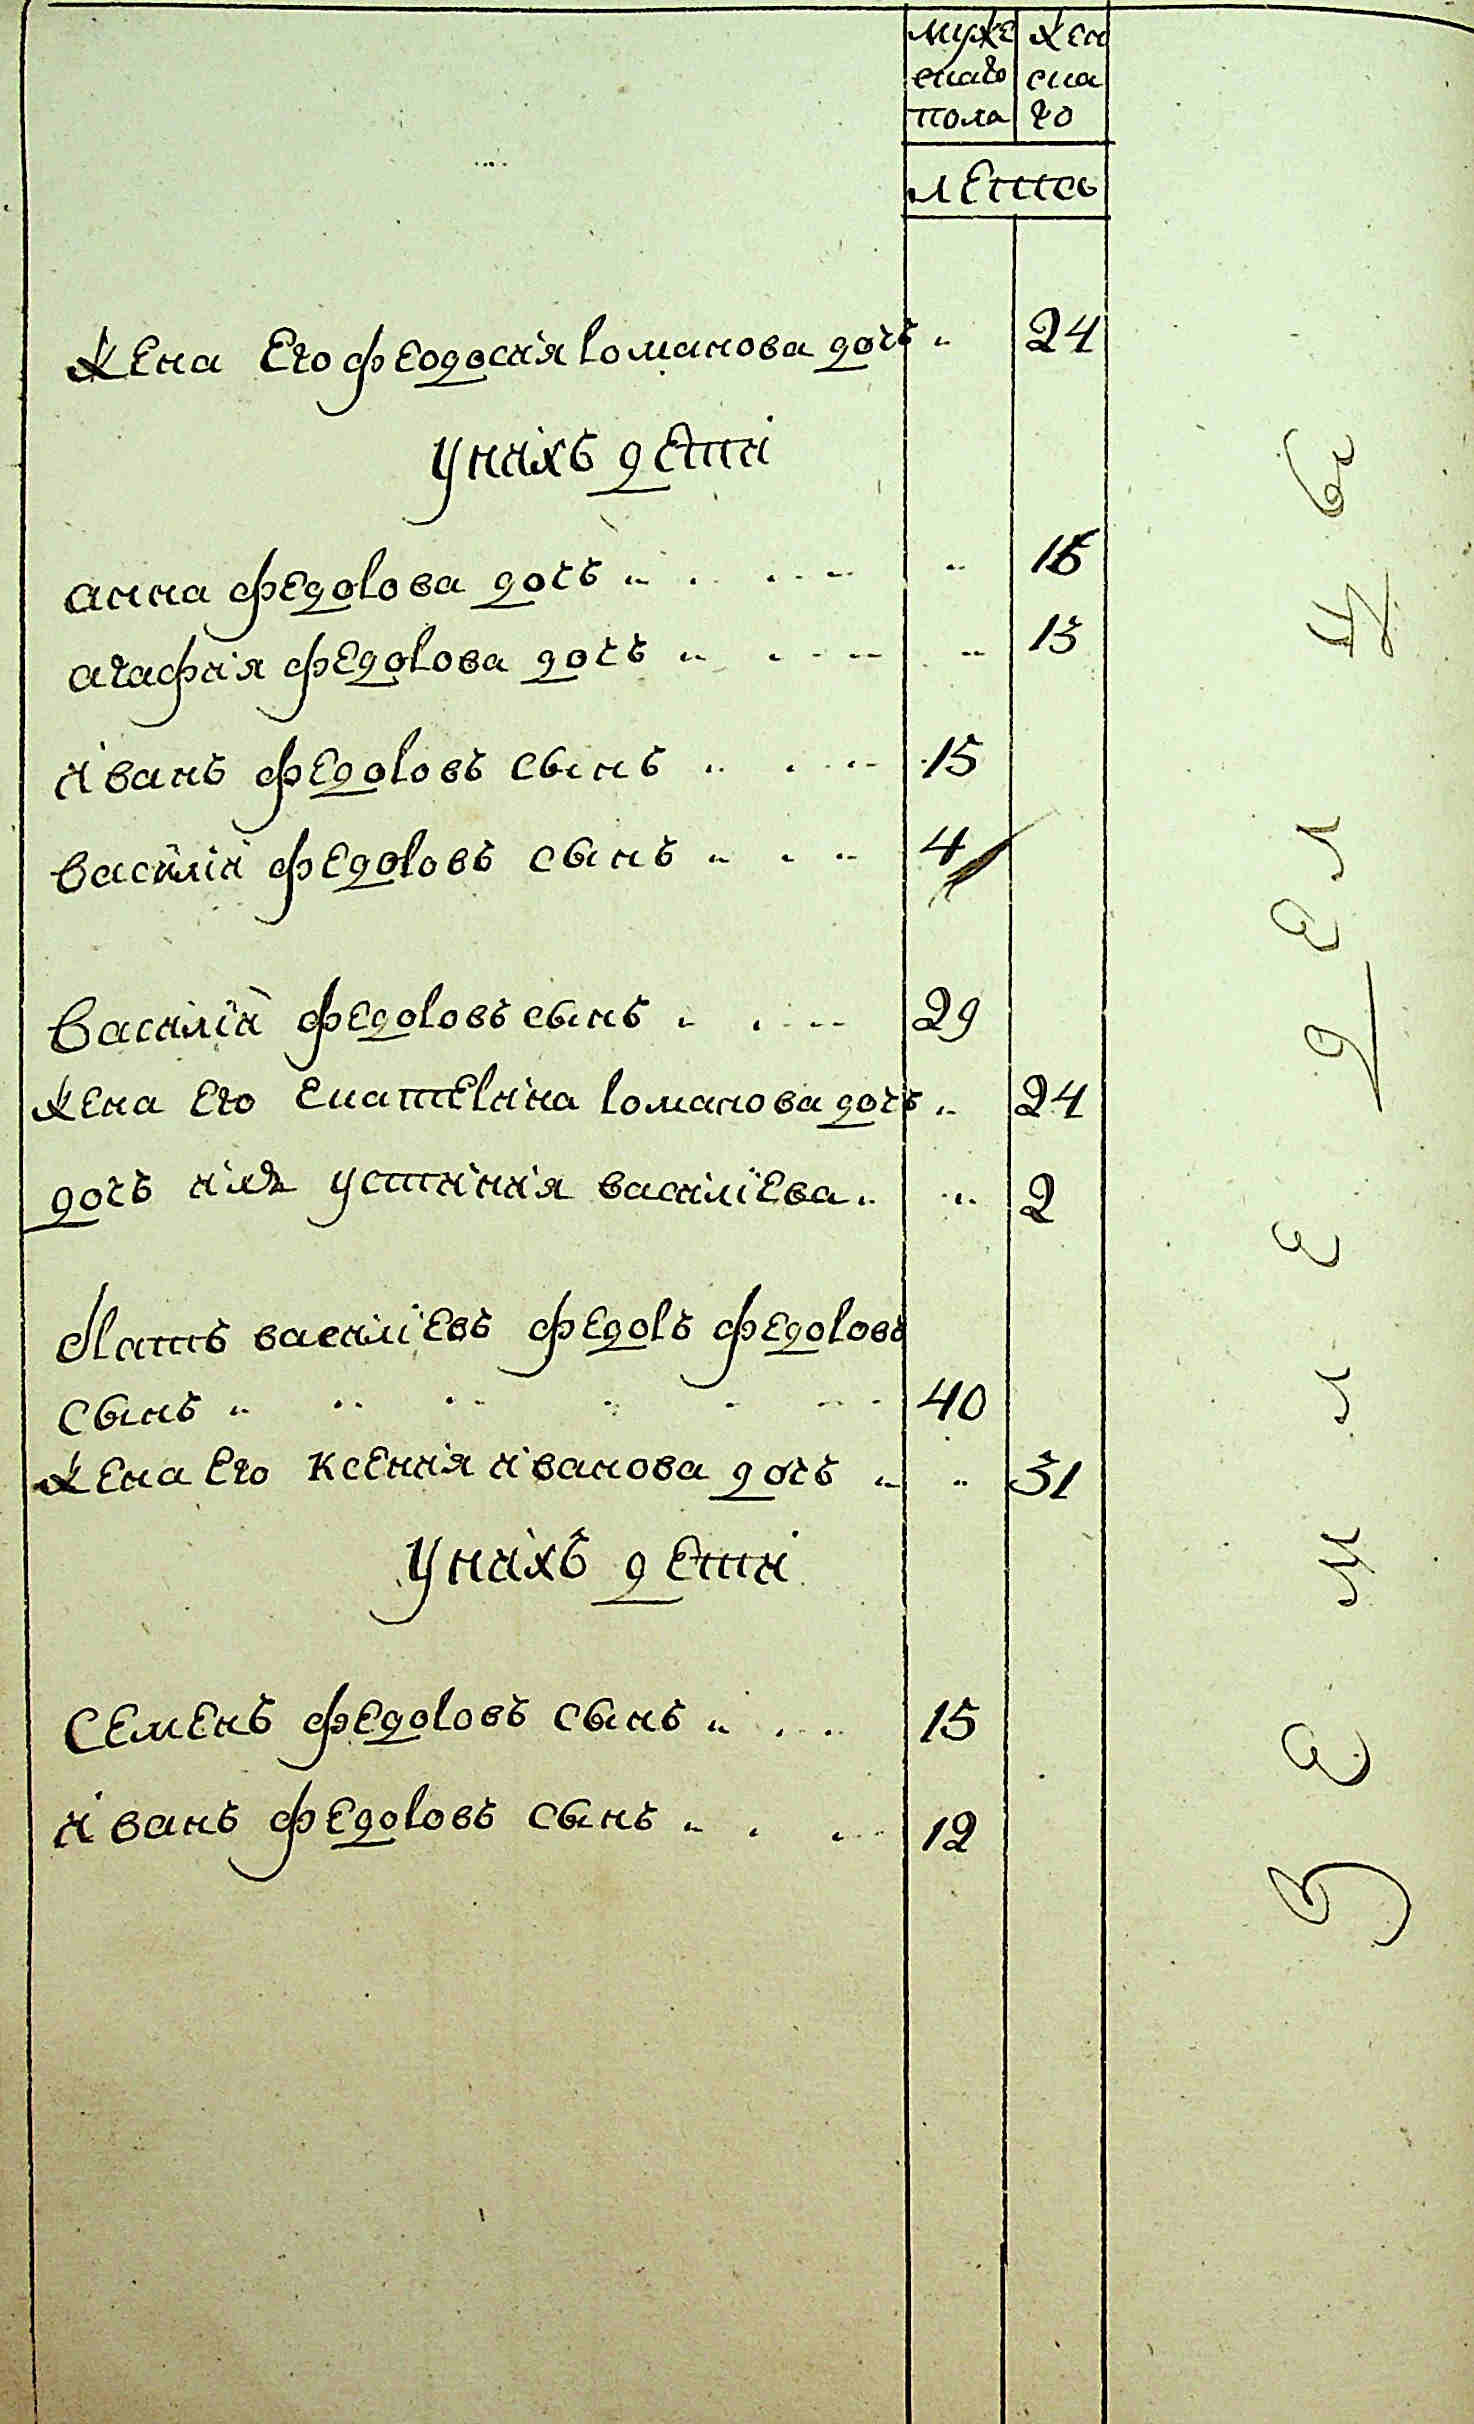 муже жен
скаго ска
пола го
летъ
жена его феодосия романова дочь 24
у них дети
анна федорова дочь 16
агафия федорова дочь 13
иванъ федоровъ сынъ 15
василий федоровъ сынъ 4
василий федоровъ сынъ 29
жена его екатерина романова дочь 24
дочь ихъ устиния василиева 2
братъ василиевъ федоръ федоровъ
сынъ 40
жена его ксения иванова дочь 31
у нихъ дети
семенъ федоровъ сынъ 15
иванъ федоровъ сынъ 12
земле дел